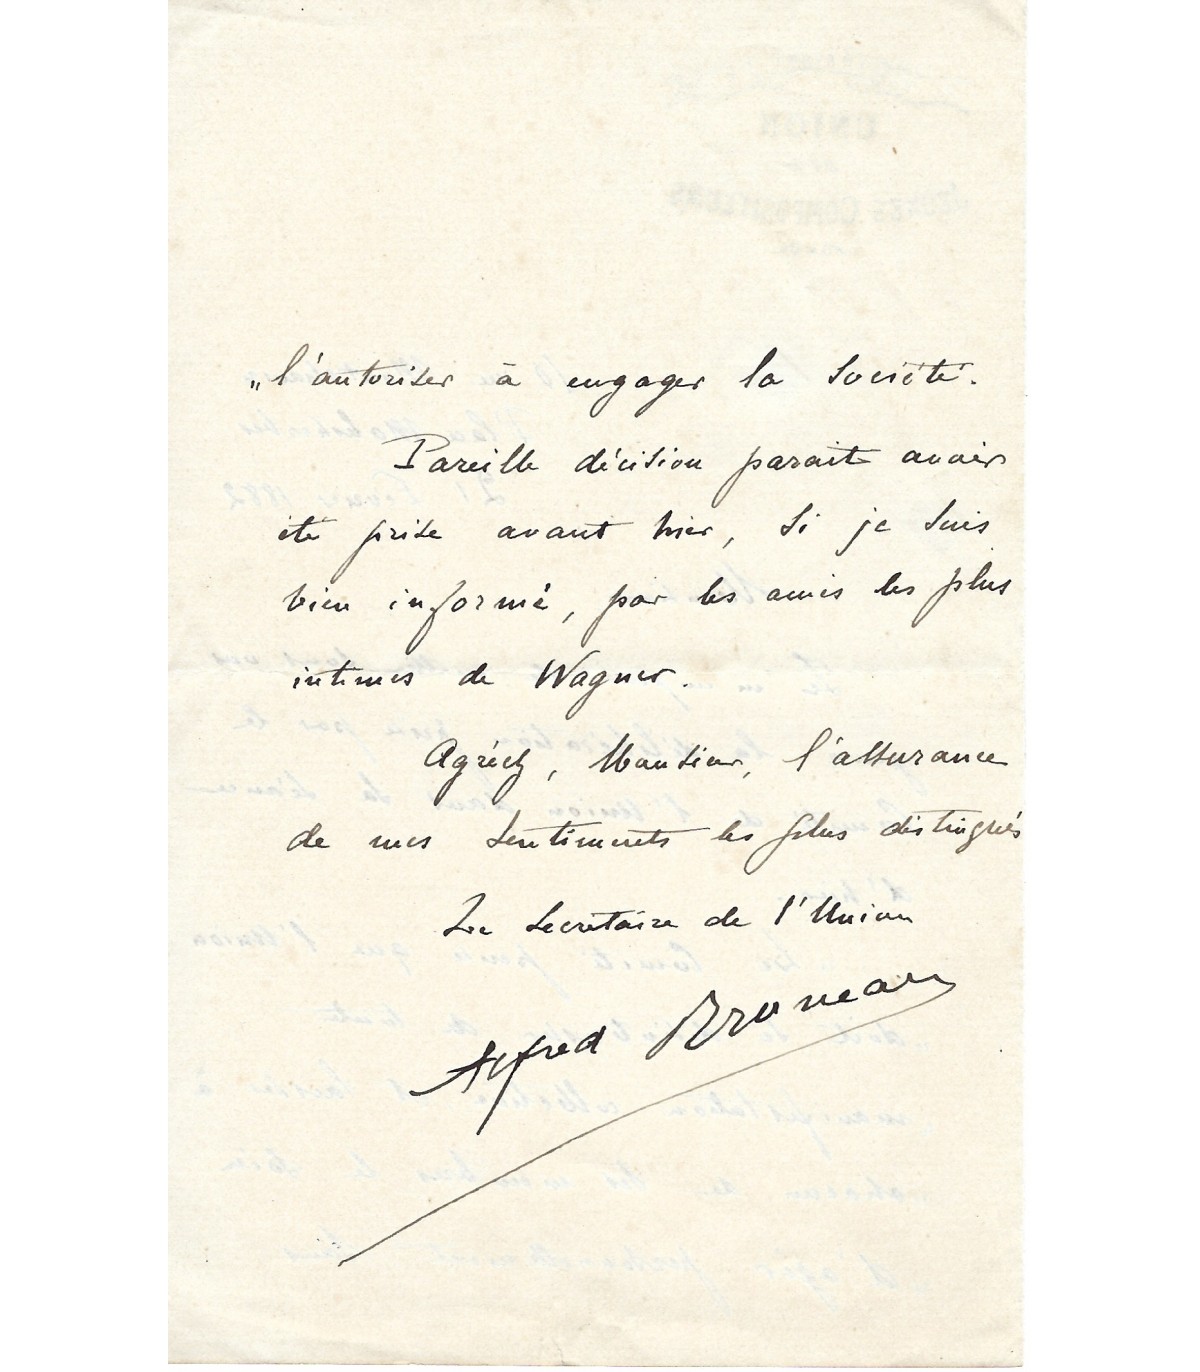 „l'autoriser à engager la Société.
Pareille décision parait avoir
été prise avant hier, si je suis
bien informé, par les amis les plus
intimes de Wagner.
Agréez, Monsieur, l'assurance
de mes sentiments les plus distingués
Le Secrétaire de l'Union
Alfred Bruneau